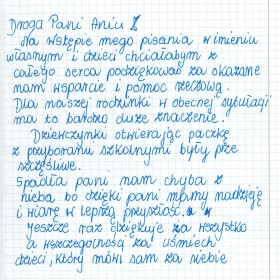 Droga Pani Aniu
Na wstępie mego pisania w imieniu
własnym i dzieci chciałabym z
całego serca podziękować za okazane
nam wsparcie i pomoc rzeczową.
Dla naszej rodzinki w obecnej sytułacji
ma to bardzo duże znaczenie.
Dziewczynki otwierając paczkę
z przyborami szkolnymi były prze
szczęśliwe.
Spadła pani nam chyba z
nieba bo dzięki pani mamy nadzieję
i wiarę w lepszą przyszłość.
Jeszcze raz dziękuje za wszystko
a wszczegolności za uśmiech
dzieci, który mówi sam za siebie